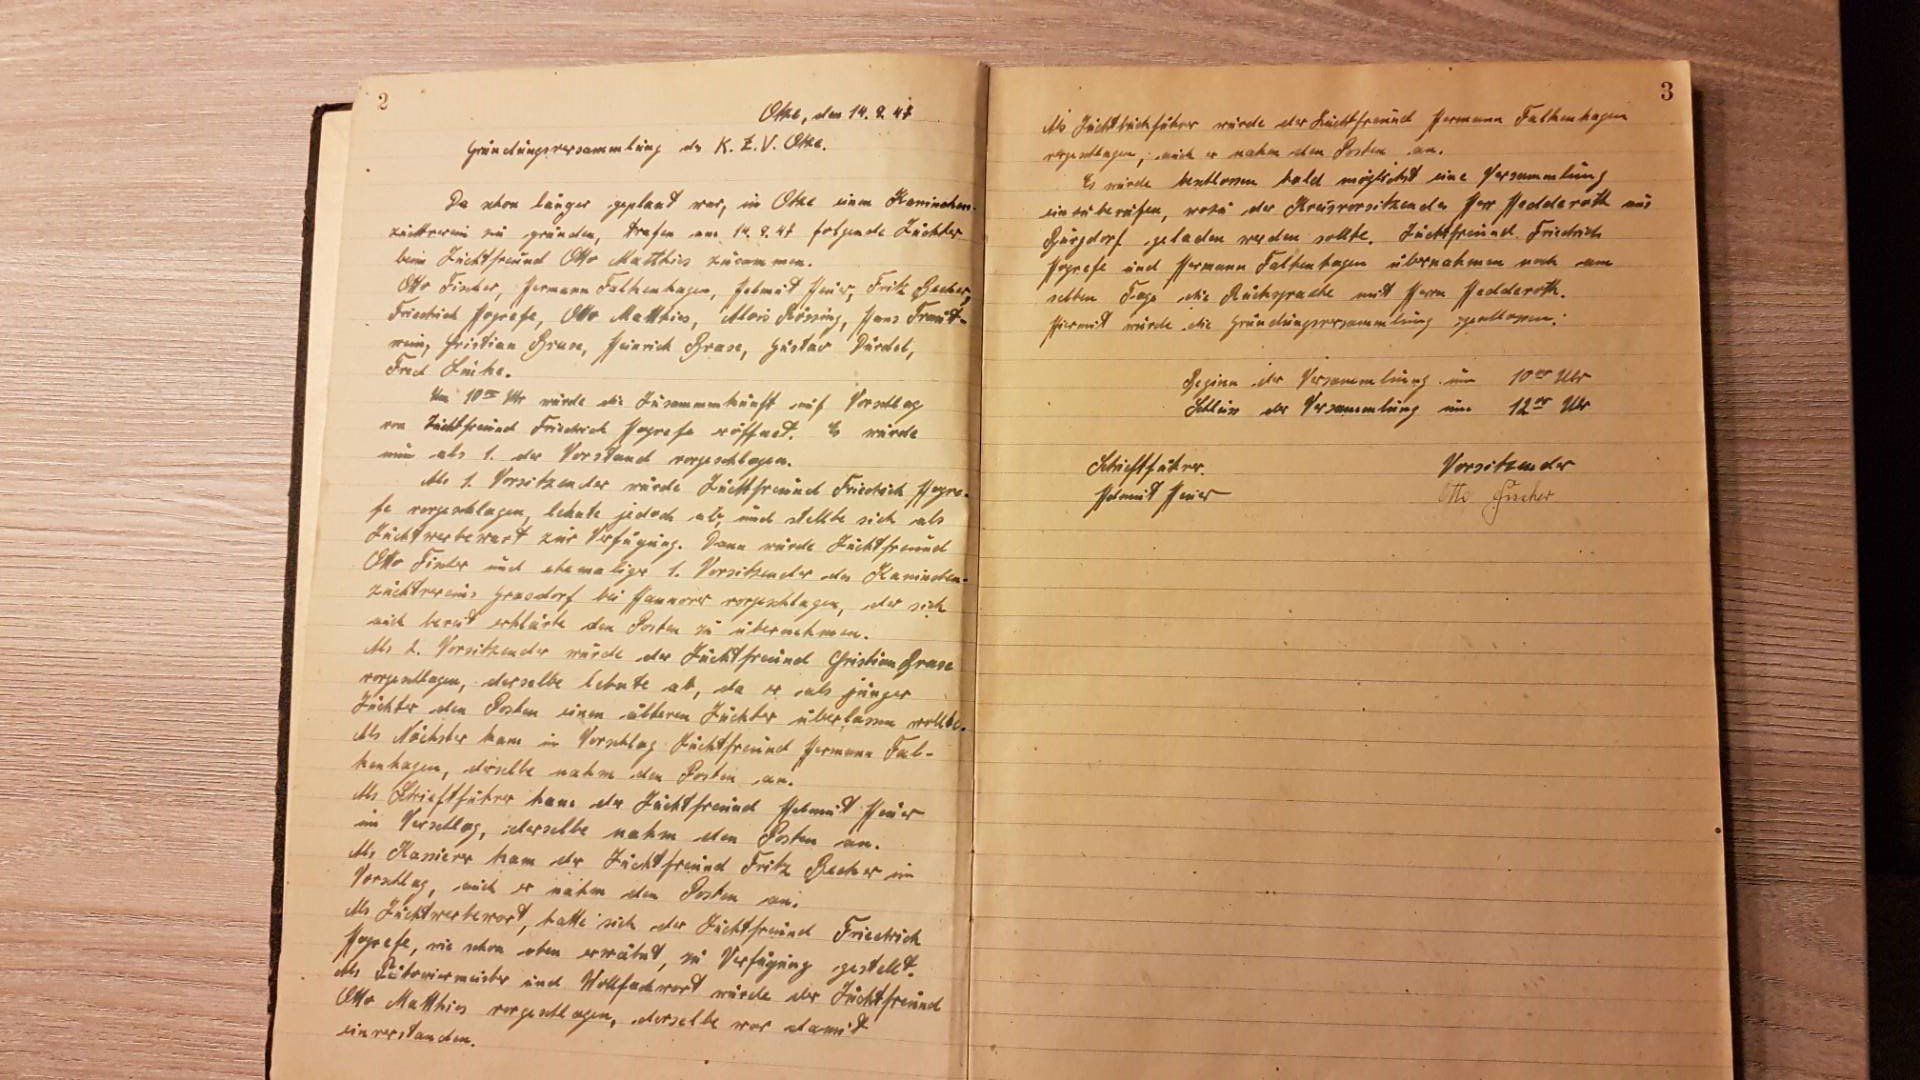 2
Otze, den 14. 9. 47
Gründungsversammlung des K. Z. V. Otze.
Da schon länger geplant war, in Otze einen Kaninchen-
zuchtverein zu gründen, trafen am 14. 9. 47 folgende Züchter
beim Zuchtfreund Otto Matthies zusammen.
Otto Fischer, Hermann Falkenhagen, Helmut Heuer, Fritz Becker,
Friedrich Hogrefe, Otto Matthies, Alois Rössing, Hans Traut-
wein, Christian Brase, Heinrich Brase, Gustav Dürdel,
Fred
Um 10 Uhr wurde die Zusammenkunft auf Vorschlag
von Zuchtfreund Friedrich Hogrefe eröffnet. Es wurde
nun als 1. der Vorstand vorgeschlagen.
Als 1. Vorsitzender wurde Zuchtfreund Friedrich Hogre-
fe vorgeschlagen, lehnte jedoch ab, und stellte sich als
Zuchtwerbewart zur Verfügung. Dann wurde Zuchtfreund
Otto Fischer und ehemaliger 1. Vorsitzender des Kaninchen-
zuchtvereins Grasdorf bei Hannover vorgeschlagen, der sich
auch bereit erklärte den Posten zu übernehmen.
Als 2. Vorsitzender wurde der Zuchtfreund Christian Brase
vorgeschlagen, derselbe lehnte ab, da er als junger
Züchter den Posten einem älteren Züchter überlassen wollte.
Als Nächster kam in Vorschlag Zuchtfreund Hermann Fal-
kenhagen, derselbe nahm den Posten an.
Als Schriftführer kam der Zuchtfreund Helmut Heuer
im Vorschlag, derselbe nahm den Posten an.
Als Kassierer kam der Zuchtfreund Fritz Becker im
Vorschlag, auch er nahm den Posten an.
Als Zuchtwerbewart, hatte sich der Zuchtfreund Friedrich
Hogrefe, wie schon oben erwähnt, zu Verfügung gestellt.
Als Tätowiermeister und Wollfachwart wurde der Zuchtfreund
Otto Matthies vorgeschlagen, derselbe war damit
einverstanden.
3
Als Zuchtbuchführer wurde der Zuchtfreund Hermann Falkenhagen
vorgeschlagen, auch er nahm den Posten an.
Es wurde beschlossen bald möglichst eine Versammlung
einzuberufen, wozu der Kreisvorsitzende Herr Hedderoth aus
Burgdorf geladen werden sollte. Zuchtfreund Friedrich
Hogrefe und Hermann Falkenhagen übernahmen noch am
selben Tage die Rücksprache mit Herrn Hedderoth.
Hiermit wurde die Gründungsversammlung geschlossen.
Beginn der Versammlung um 10 00 Uhr
Schluss der Versammlung um 12 00 Uhr
Schriftführer. Vorsitzender
Helmut Heuer Otto Fischer